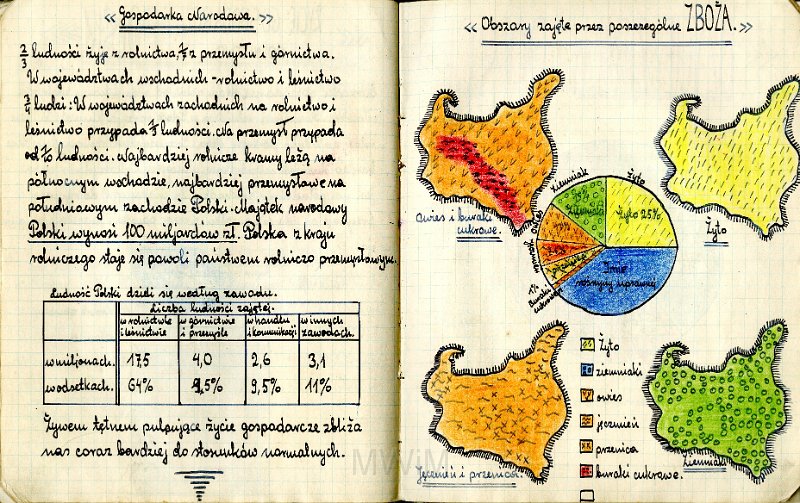 « Gospodarka Narodowa. »
2/3 ludności żyje z rolnictwa, 1/5 z przemysłu i górnictwa.
W województwach wschodnich - rolnictwo i leśnictwo
ludzi: W województwach zachodnich na rolnictwo i
leśnictwo przypada ludności. Na przemysł przypada
od ludności. Najbardziej rolnicze kramy leżą na
północnym wschodzie, najbardziej przemysłowe na
południowym zachodzie Polski. Majątek narodowy
Polski wynosi 100 miljardów zł. Polska z kraju
rolniczego staje się powoli państwem rolniczo przemysłowym.
Ludność Polski dzieli się według zawodu.
Liczba ludności zajętej.
w rolnictwie i leśnictwie w górnictwie i przemyśle w handlu i komunikacji w innych zawodach.
w miljonach. 17,5 4,0 2,6 3,1
w odsetkach. 64% 9,5% 11%
Żywem tętnem pulsujące życie gospodarcze zbliża
nas coraz bardziej do stosunków normalnych.
« Obszary zajęte przez poszczególne ZBOŻA. »
Owies i buraki
cukrowe.
Żyto
Ziemniaki
Żyto
owies
Ziemniaki
Żyto 25%
Inne
rośliny uprawne
Buraki
Żyto
ziemniaki
owies
jęczmień
pszenica
buraki cukrowe.
Jęczmień i pszenica
Ziemniaki
MWiM